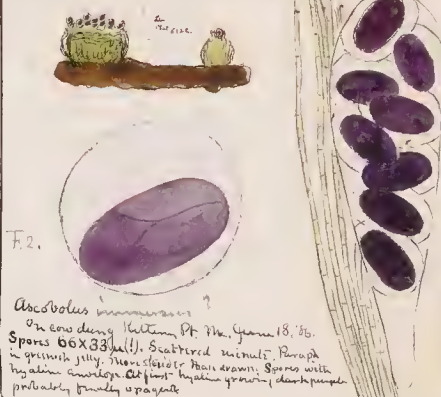 F. 2.
Ascobolus immersus ?
On cow dung Kittery Pt. Me. June 18, '86.
Spores 66 X 33 µ (!). Scattered minute. Paraph
in greenish jelly. More slender than drawn. Spores with
hyaline envelop. At first hyaline growing dark purple
probably finally opaque